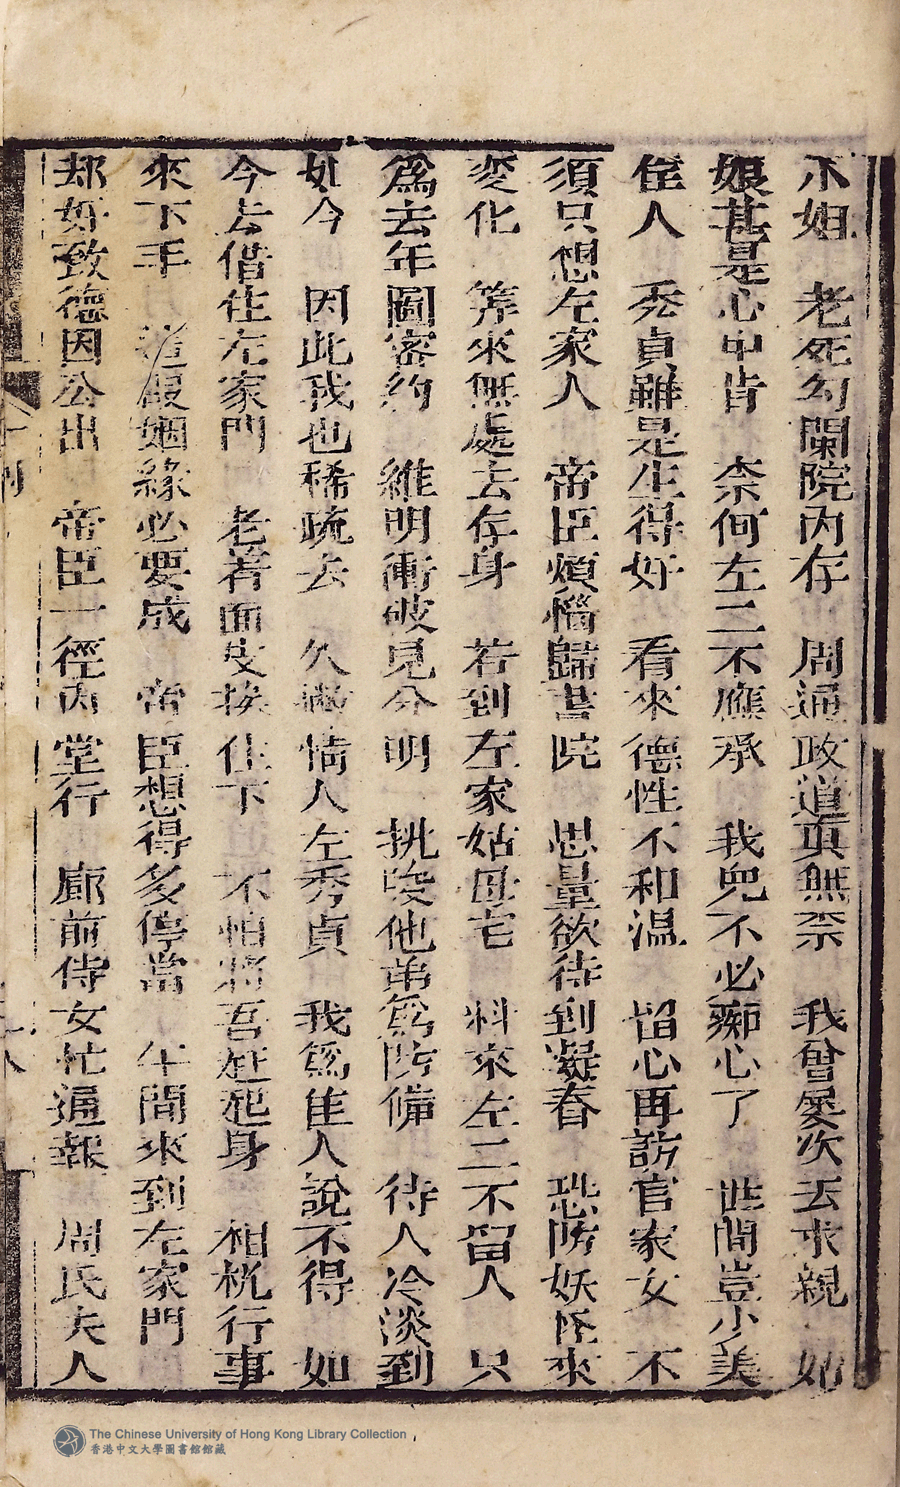 小姐　老死勾闌院內存　周通政道真無奈　我曾屡次去求親　如
娘甚是心中肯　奈何左二不應承　我兒不必痴心了　世間豈少美
佳人　秀貞雖是生得好　看來德性不和温　留心再訪官家女　不
須只想左家人　帝臣煩惱歸書院　思量欲待到凝春　恐防妖怪來
变化　筭來無處去存身　若到左家姑母宅　料來左二不留人　只
為去年圖密約　維明衝破見分明　挑唆他弟為防備　待人冷淡到
如今　因此我也稀疏去　久 情人左秀貞　我為佳人說不得　如
今去借住左家門　老著面皮挨住下　不怕将吾赶起身　相机行事
來下手　這段姻緣必要成　帝臣想得多停當　午間來到左家門
却好致德因公出　帝臣一徑內堂行　廊前侍女忙通報　周氏夫人
The Chinese University of Hong Kong Library Collection
香港中文大學圖書館館藏